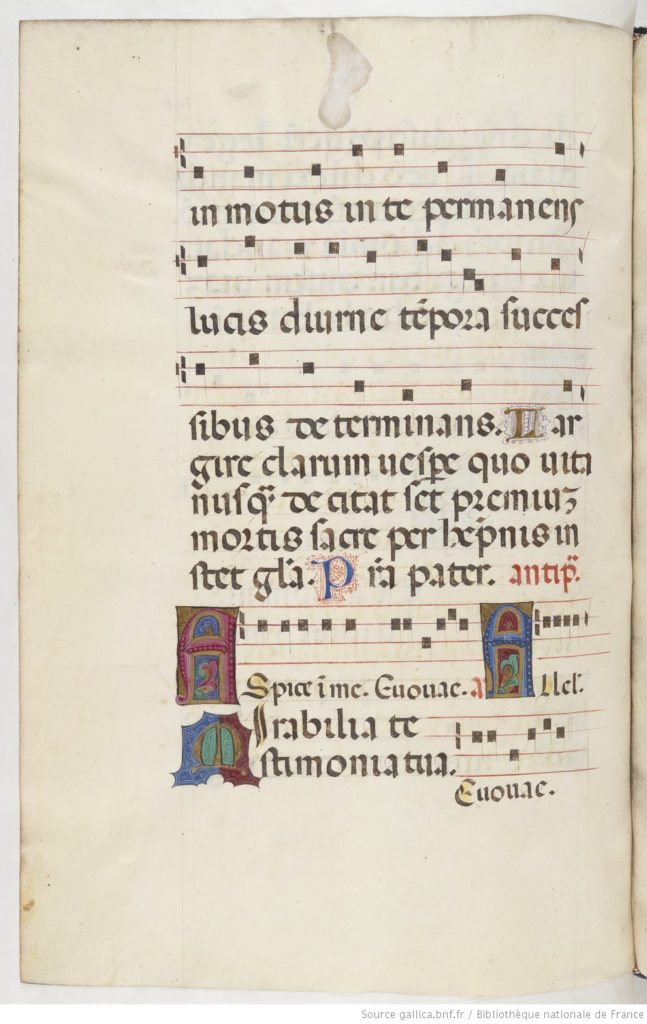 in motus in te permanens
lucis diurne tēpora succes
sibus determinans. Lar
gire clarum uespe quo uita
nusq̄ de citat set premiuz
mortis sacre per hēpnis in
stet gl̄a. P r̄ia pater. antip̄.
Aspice ī me. Euouae. a Allel.
Mirabilia te
stimonia tua.
Euouae.
Source gallica.bnf.fr / Bibliothèque nationale de France